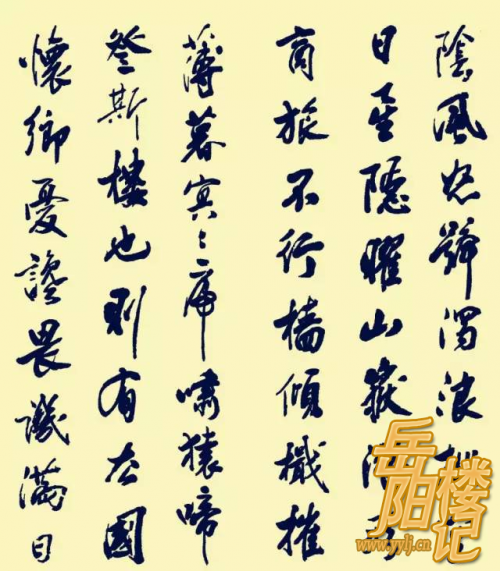 陰風怒號濁浪排空
日星隱曜山嶽潛形
商旅不行檣傾檝摧
薄暮冥々虎嘯猿啼
登斯樓也則有去國
懷鄉憂讒畏譏滿目
岳阳楼记
www.yylj.cn